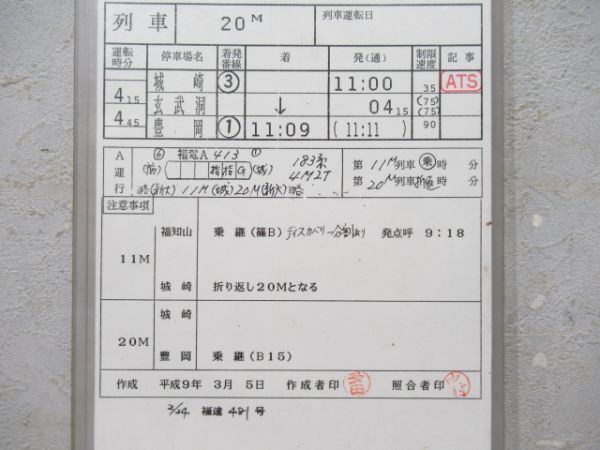 列車 20M 列車運転日
運転時分 停車場名 着発番線 着 発(通) 制限速度 記事
城崎 ③ 11:00 35 ATS
4 15 玄武洞 ↓ 04 15 (75) (75)
4 45 豊岡 ① 11:09 (11:11) 90
A運行 ⑥ 福電A413 ① 183系 第11M列車 乗 時 分
指 指 G (城) 4M2T 第20M列車 時 分
11M(城)20M
注意事項
11M 福知山 乗継(篠B) ディスカバリー分割あり 発点呼 9:18
城崎 折り返し20Mとなる
20M 城崎
豊岡 乗継(B15)
作成 平成9年 3月 5日 作成者印 照合者印
2/24 福達 481号